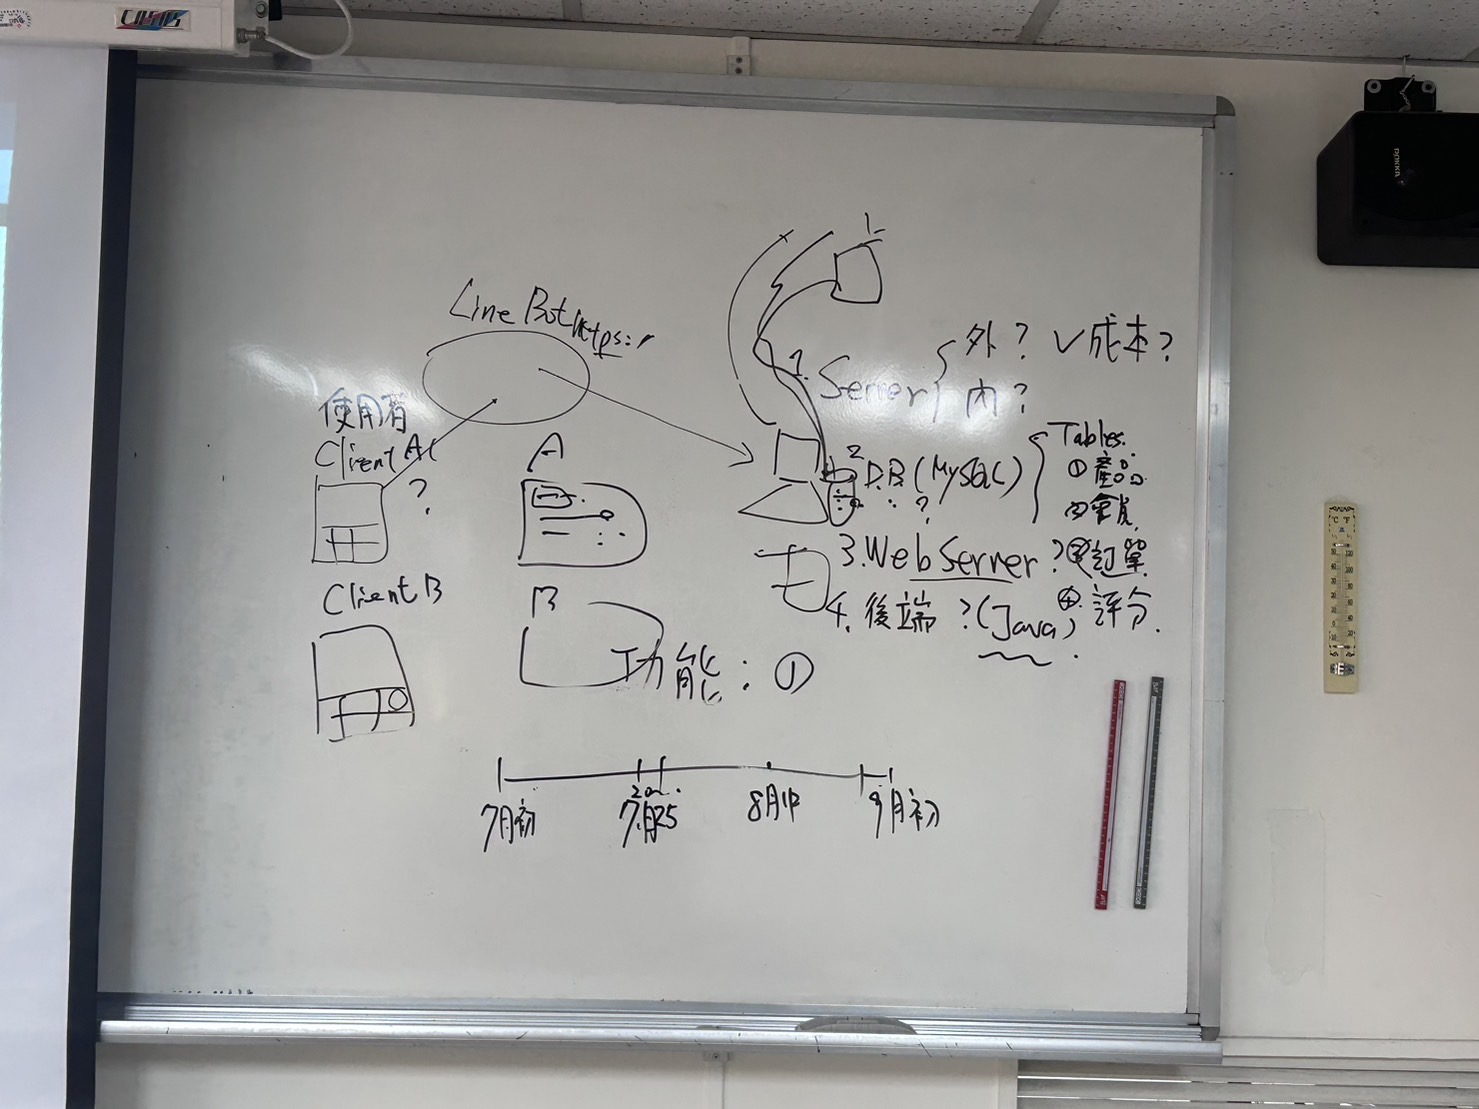 Line Bot
https:/
使用者
Client A
?
Client B
A
B
功能：①
1. Server
外？ ✓成本？
內？
2 D.B (MySQL)
?
Tables.
① 產品
② 會員
3. Web Server ? ③ 訂單
4. 後端 ? (Java) ④ 評分.
7月初
7月25
8月中
9月初